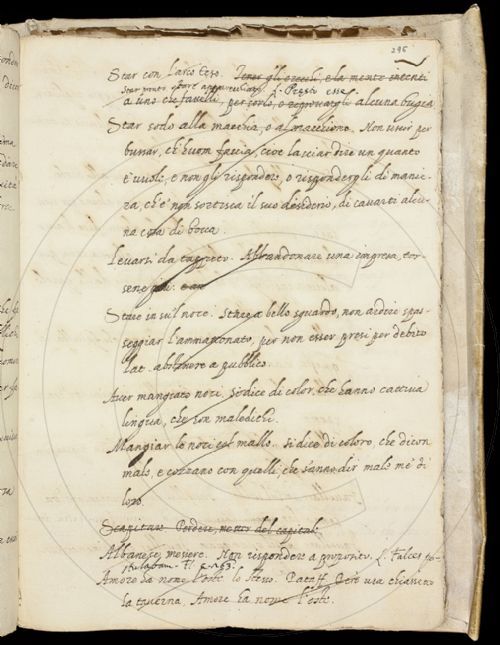 296
Star con l'arco teso. Tener gli orecchi, e la mente intenti
a uno che favelli, per corlo, o riprovargli alcuna bugia
Star sodo alla macchia, o al macchione. Non uscir per
bussar, ch'huom faccia, cioè lasciar dire un quanto
e' vuole, e non gli rispondere, o rispondergli di manie-
ra, ch'e' non sortisca il suo desiderio, di cavarti alcu-
na cosa di bocca.
Levarsi da tappeto. Abbandonare una impresa, tor-
sene giù.
Stare in sul noce. Stare a bello sguardo, non ardire pas-
seggiar l'ammattonato, per non esser presi per debito
Lat. abstinere a publico.
Aver mangiato noci. si dice di color, che hanno cattiva
lingua, che son maledichi.
Mangiar le noci col mallo. si dice di coloro, che dicon
male, e cozzano con quelli, che sanno dir male me' di
loro.
Scapitare. Perdere, metter del capitale
Albanese, messere. Non rispondere a proposito. L. Falces po-
stulabam.
Amore ha nome l'oste lo stesso. Pataff. Però usa chiasseto
la taverna, Amore ha nome l'oste.